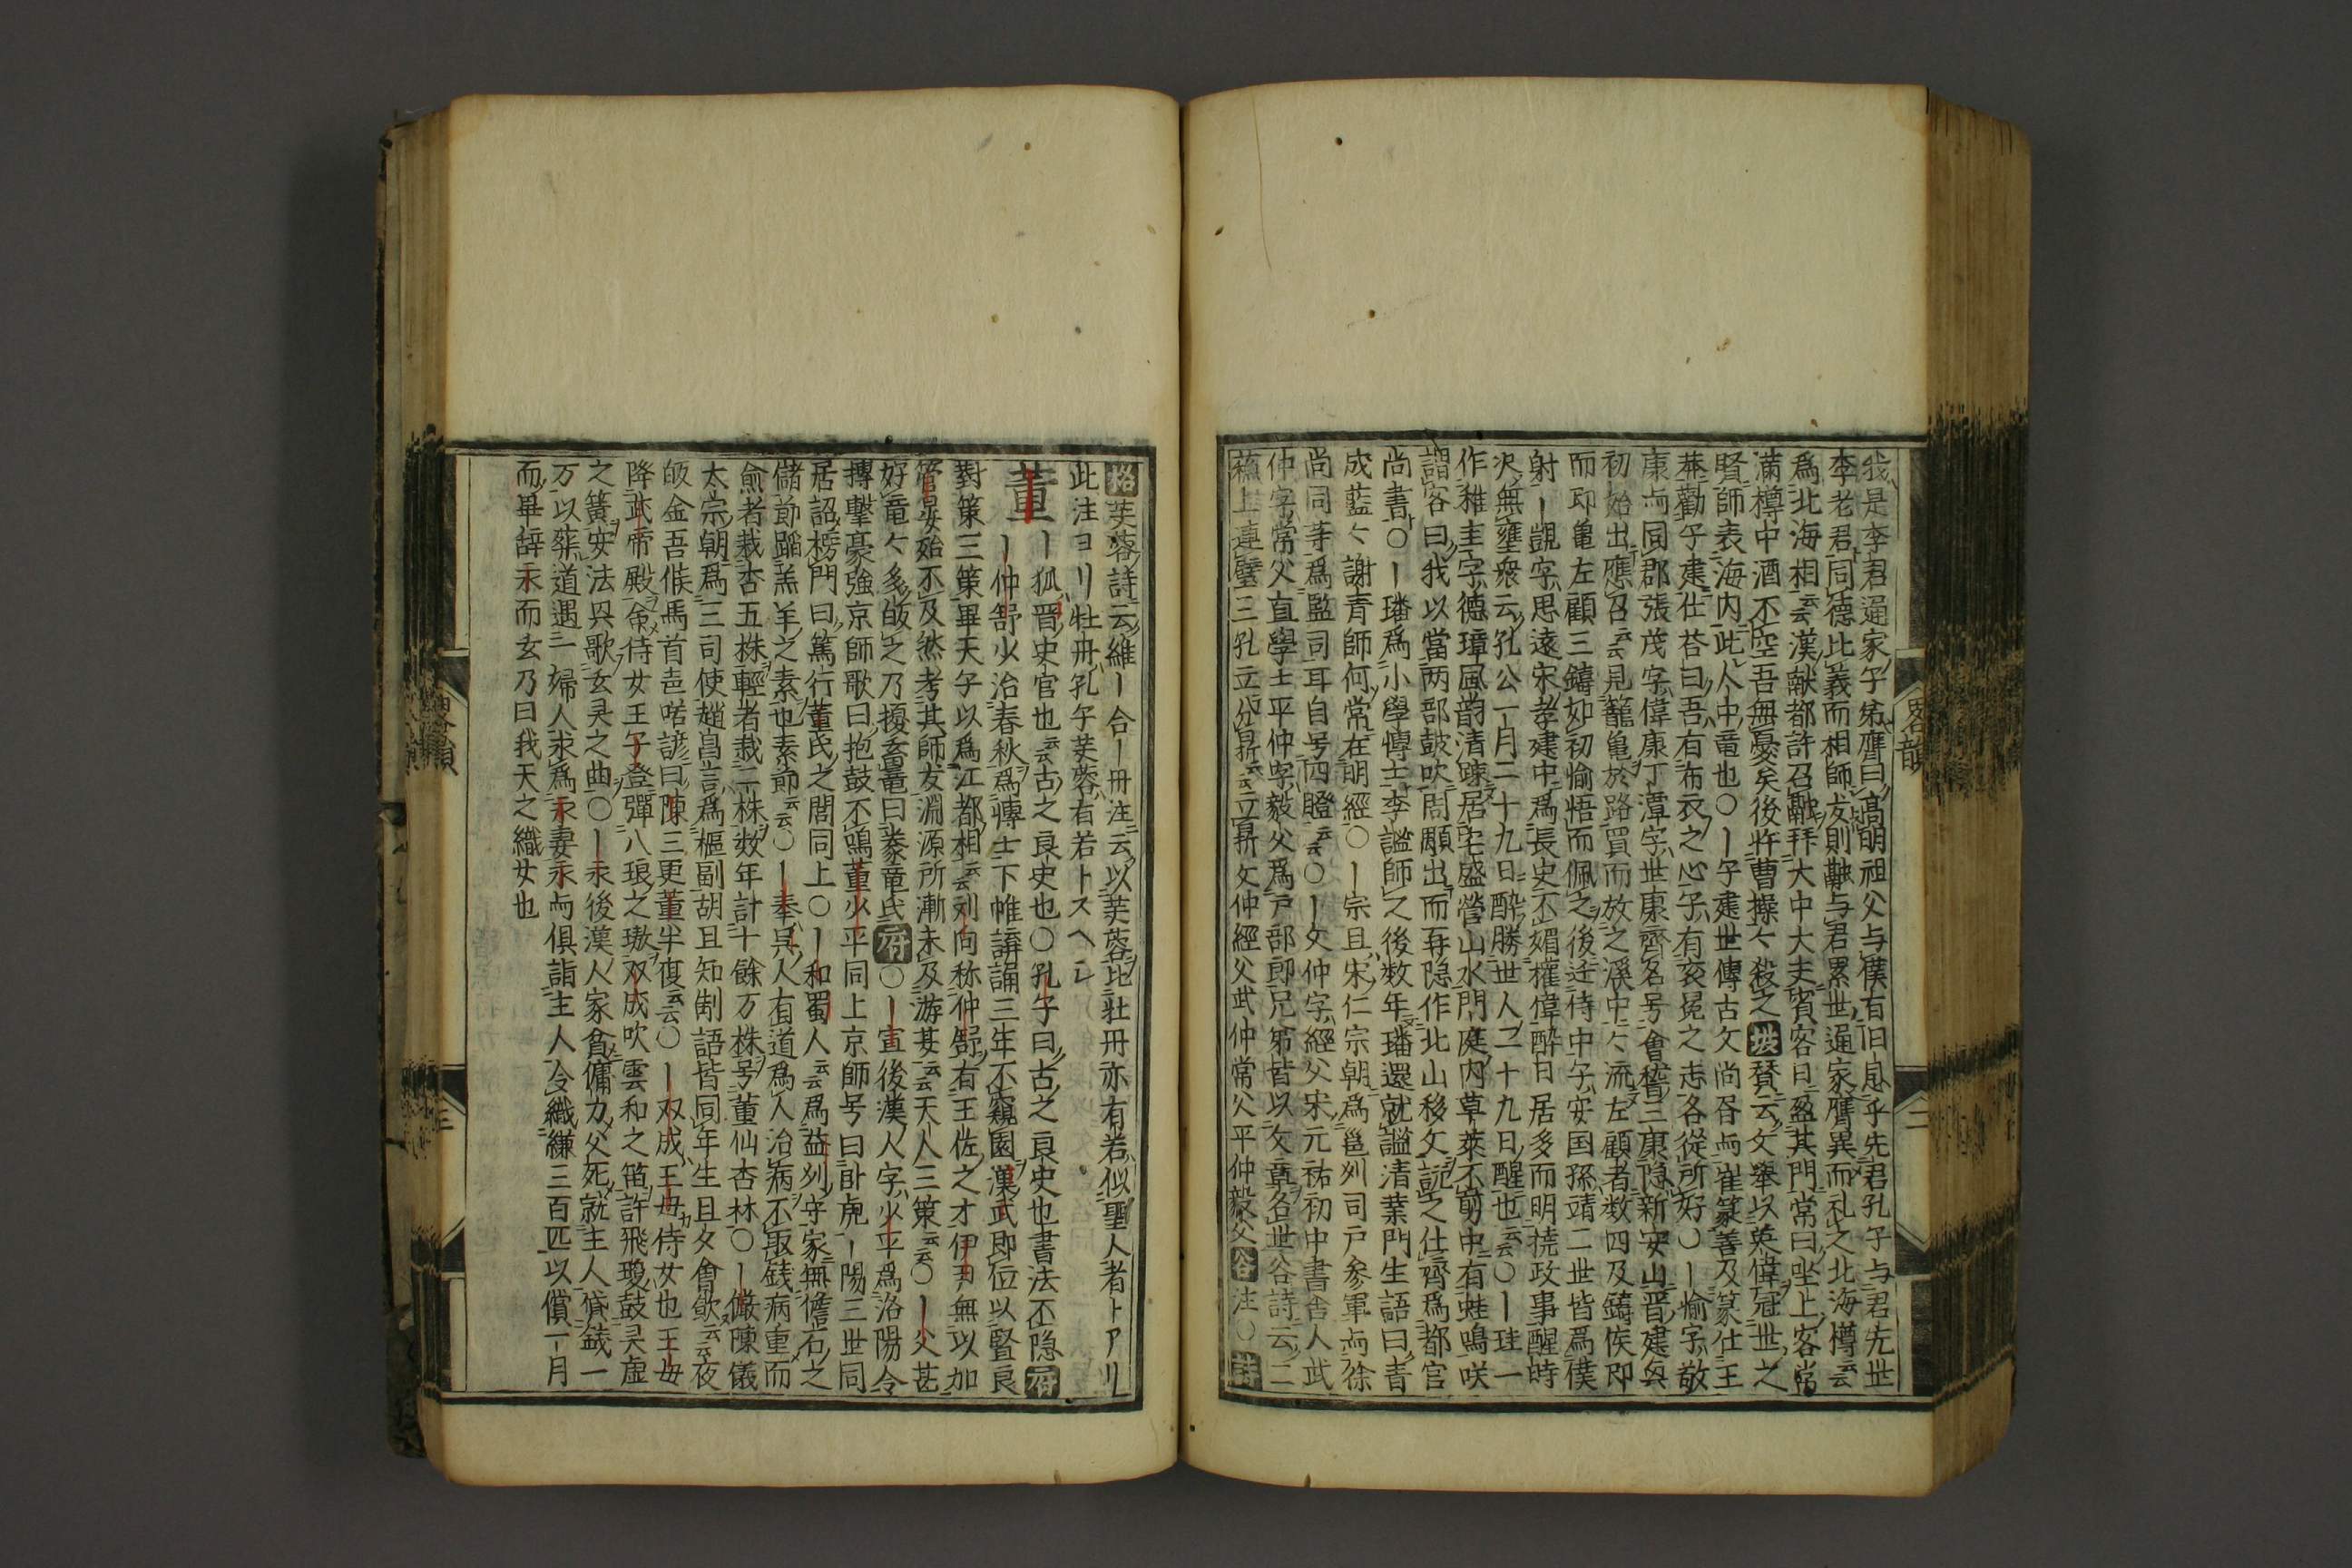 我是李君通家子弟膺曰高明祖父与僕有旧息乎先君孔子与君先世
李老君同德比義而相師友則融与君累世通家膺異而礼之北海樽云
爲北海相云云漢献都許召融拜大中大夫賓客日盈其門常曰坐上客常
滿樽中酒不空吾無憂矣後忤曹操々殺之坡賛云文舉以英偉冠世之
賢師表海内此人中竜也〇ー子建世傳古文尚書而崔篆善及篆仕王
莽勸子建仕荅曰吾有布衣之心子有衮冕之志各從所好〇ー愉字敬
康而同郡張茂字偉康丁潭字世康齊名号會稽三康隐新安山晋建興
初始出應召云云見籠亀於路買而放之溪中々流左顧者数四及鑄侯即
而即亀左顧三鑄如初愉悟而佩之後迁侍中子安国孫靖二世皆爲僕
射ー覬字思遠宋孝建中爲長史不媚権偉醉日居多而明暁政事醒時
沢無壅衆云孔公一月二十九日醉勝世人二十九日醒也云云〇ー珪一
作稚圭字德璋風韵清疎居宅盛營山水門庭内草萊不剪中有蛙鳴咲
謂客曰我以當両部鼓吹周顒出而再隐作北山移文記之仕齊爲都官
尚書〇ー璠爲小學愽士李謐師之後数年璠還就謐清業門生語曰青
成藍々謝青師何常在明經〇ー宗且宋仁宗朝爲邕州司戸参軍而徐
尚同等爲監司耳自号四瞪云云〇ー文仲字經父宋元祐初中書舎人武
仲字常父直學士平仲字毅父爲戸部郎兄弟皆以文章名世谷詩云二
蘓上連璧三孔立分鼎云云立鼎文仲經父武仲常父平仲毅父谷注〇
畧韻
二
格芙蓉詩云維ー合ー丹注云以芙蓉比牡丹亦有若似聖人者トアリ
此注ヨリ牡丹孔子芙蓉有若トスヘシ
董ー狐晋史官也云云古之良史也〇孔子曰古之良史也書法不隐府
ー仲舒少治春秋爲愽士下帷講誦三年不窺園漢武即位以賢良
對策三策畢天子以爲江都相云云刘向称仲舒有王佐之才伊尹無以加
管晏始不及然考其師友淵源所漸未及游其云云天人三策云云〇ー父甚
好竜々多皈之乃擾畜竜曰豢竜氏府〇ー宣後漢人字少平爲洛陽令
摶撃豪強京師歌曰抱鼓不鳴董少平同上京師号曰卧虎ー陽三世同
居詔榜門曰篤行董氏之閭同上〇ー和蜀人云云爲益州守家無儋石之
儲節踰羔羊之素也素節云云〇ー奉呉人有道爲人治病不取銭病重而
愈者栽杏五株輕者栽一株数年計十餘万株号董仙杏林〇ー儼陳儀
太宗朝爲三司使趙昌言爲樞副胡且知制語皆同年生且夕會飲云云夜
皈金吾候馬首邑喏諺曰陳三更董半夜云云〇ー双成王母侍女也王母
降武帝殿命侍女王子登彈八琅之璈双成吹雲和之笛許飛瓊鼓灵虚
之簧安法興歌玄灵之曲〇ー永後漢人家貧傭力父死就主人貸銭一
万以葬道遇一婦人求爲永妻永而倶詣主人令織縑三百匹以償一月
而畢辞永而玄乃曰我天之織女也